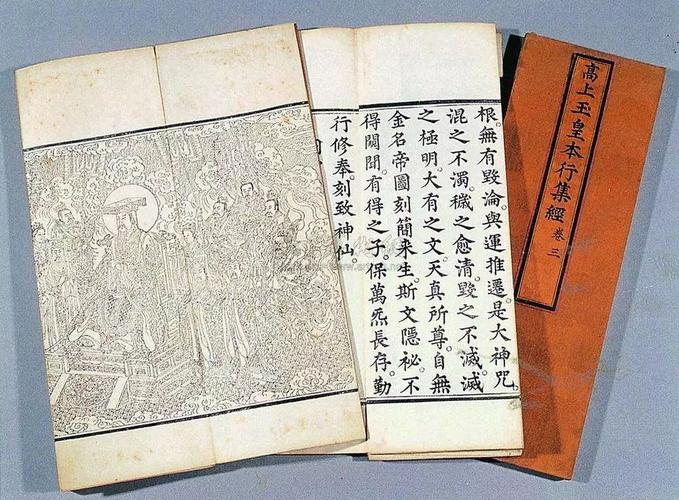 高上玉皇本行集經 卷三
根。無有毀淪。與運推遷。是大神咒。
混之不濁。穢之愈清。毀之不滅。滅
之極明。大有之文。天真所尊。自無
金名帝圖。刻簡来生。斯文隱祕。不
得闚聞。有得之子。保萬炁長存。勤
行修奉。刻致神仙。